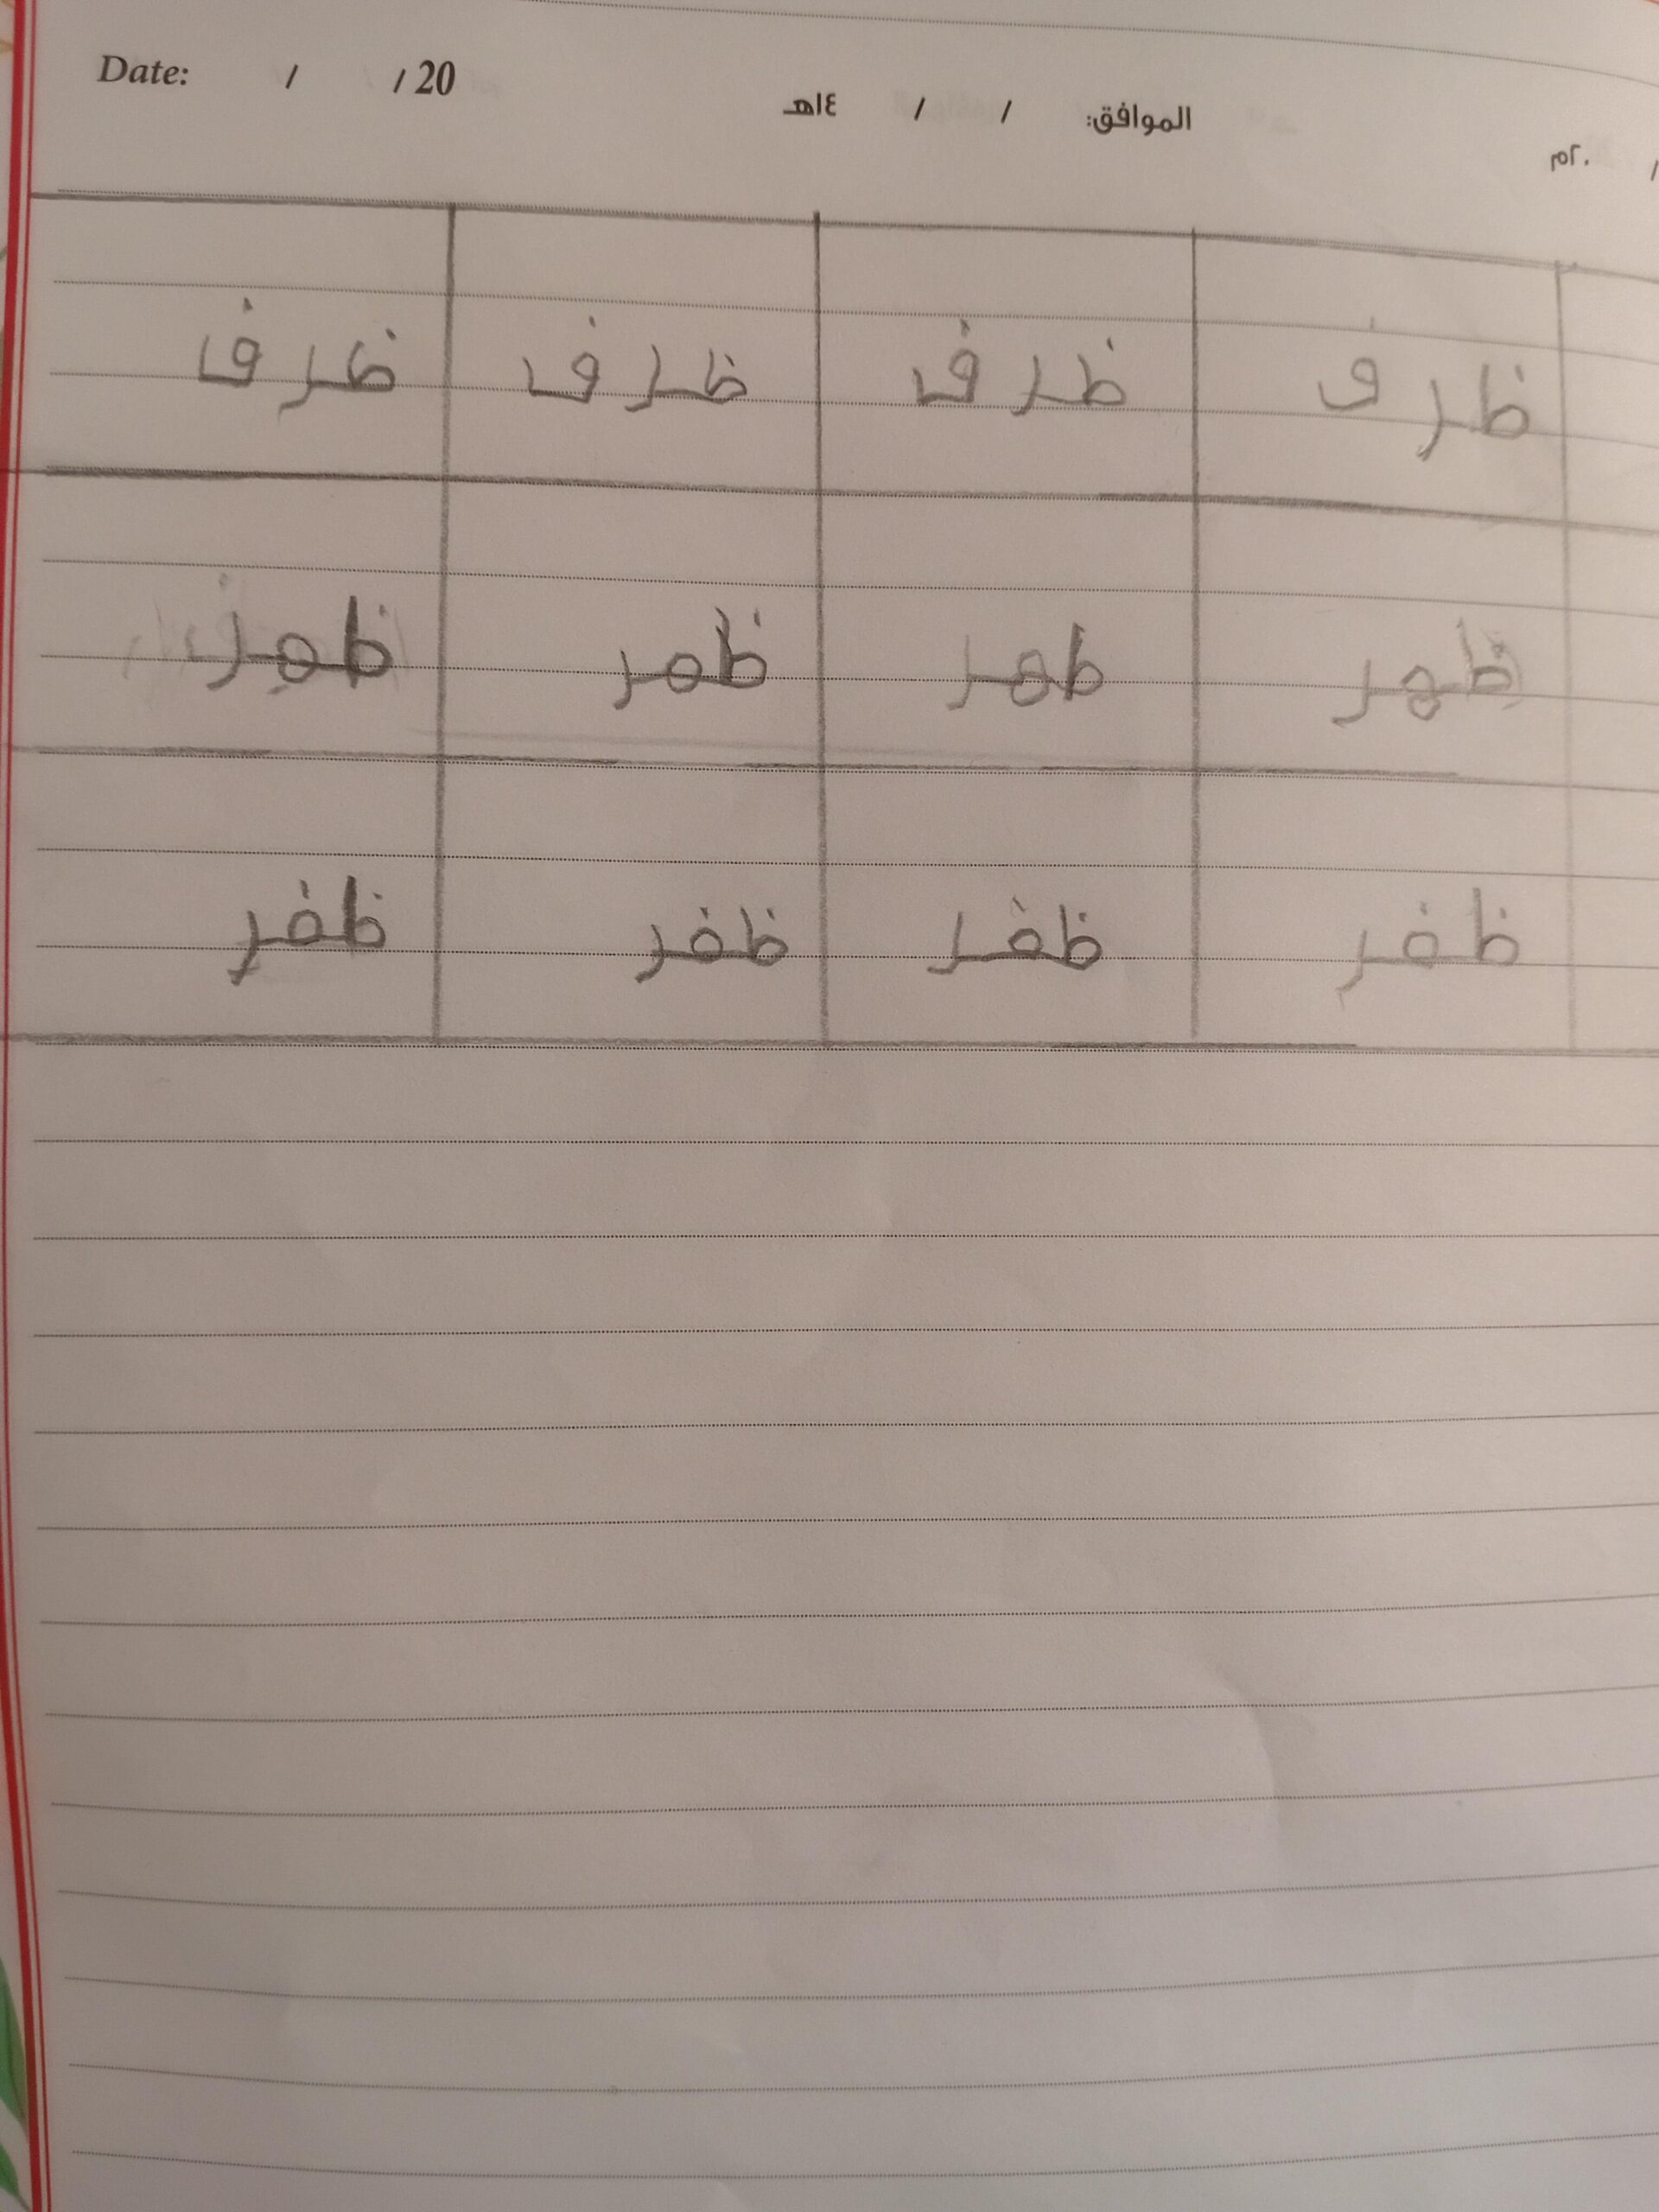 Date: / / 20 الموافق: / / ١٤هـ / ٢٠م
ظرف ظرف ظرف ظرف
ظهر ظهر ظهر ظهر
ظفر ظفر ظفر ظفر